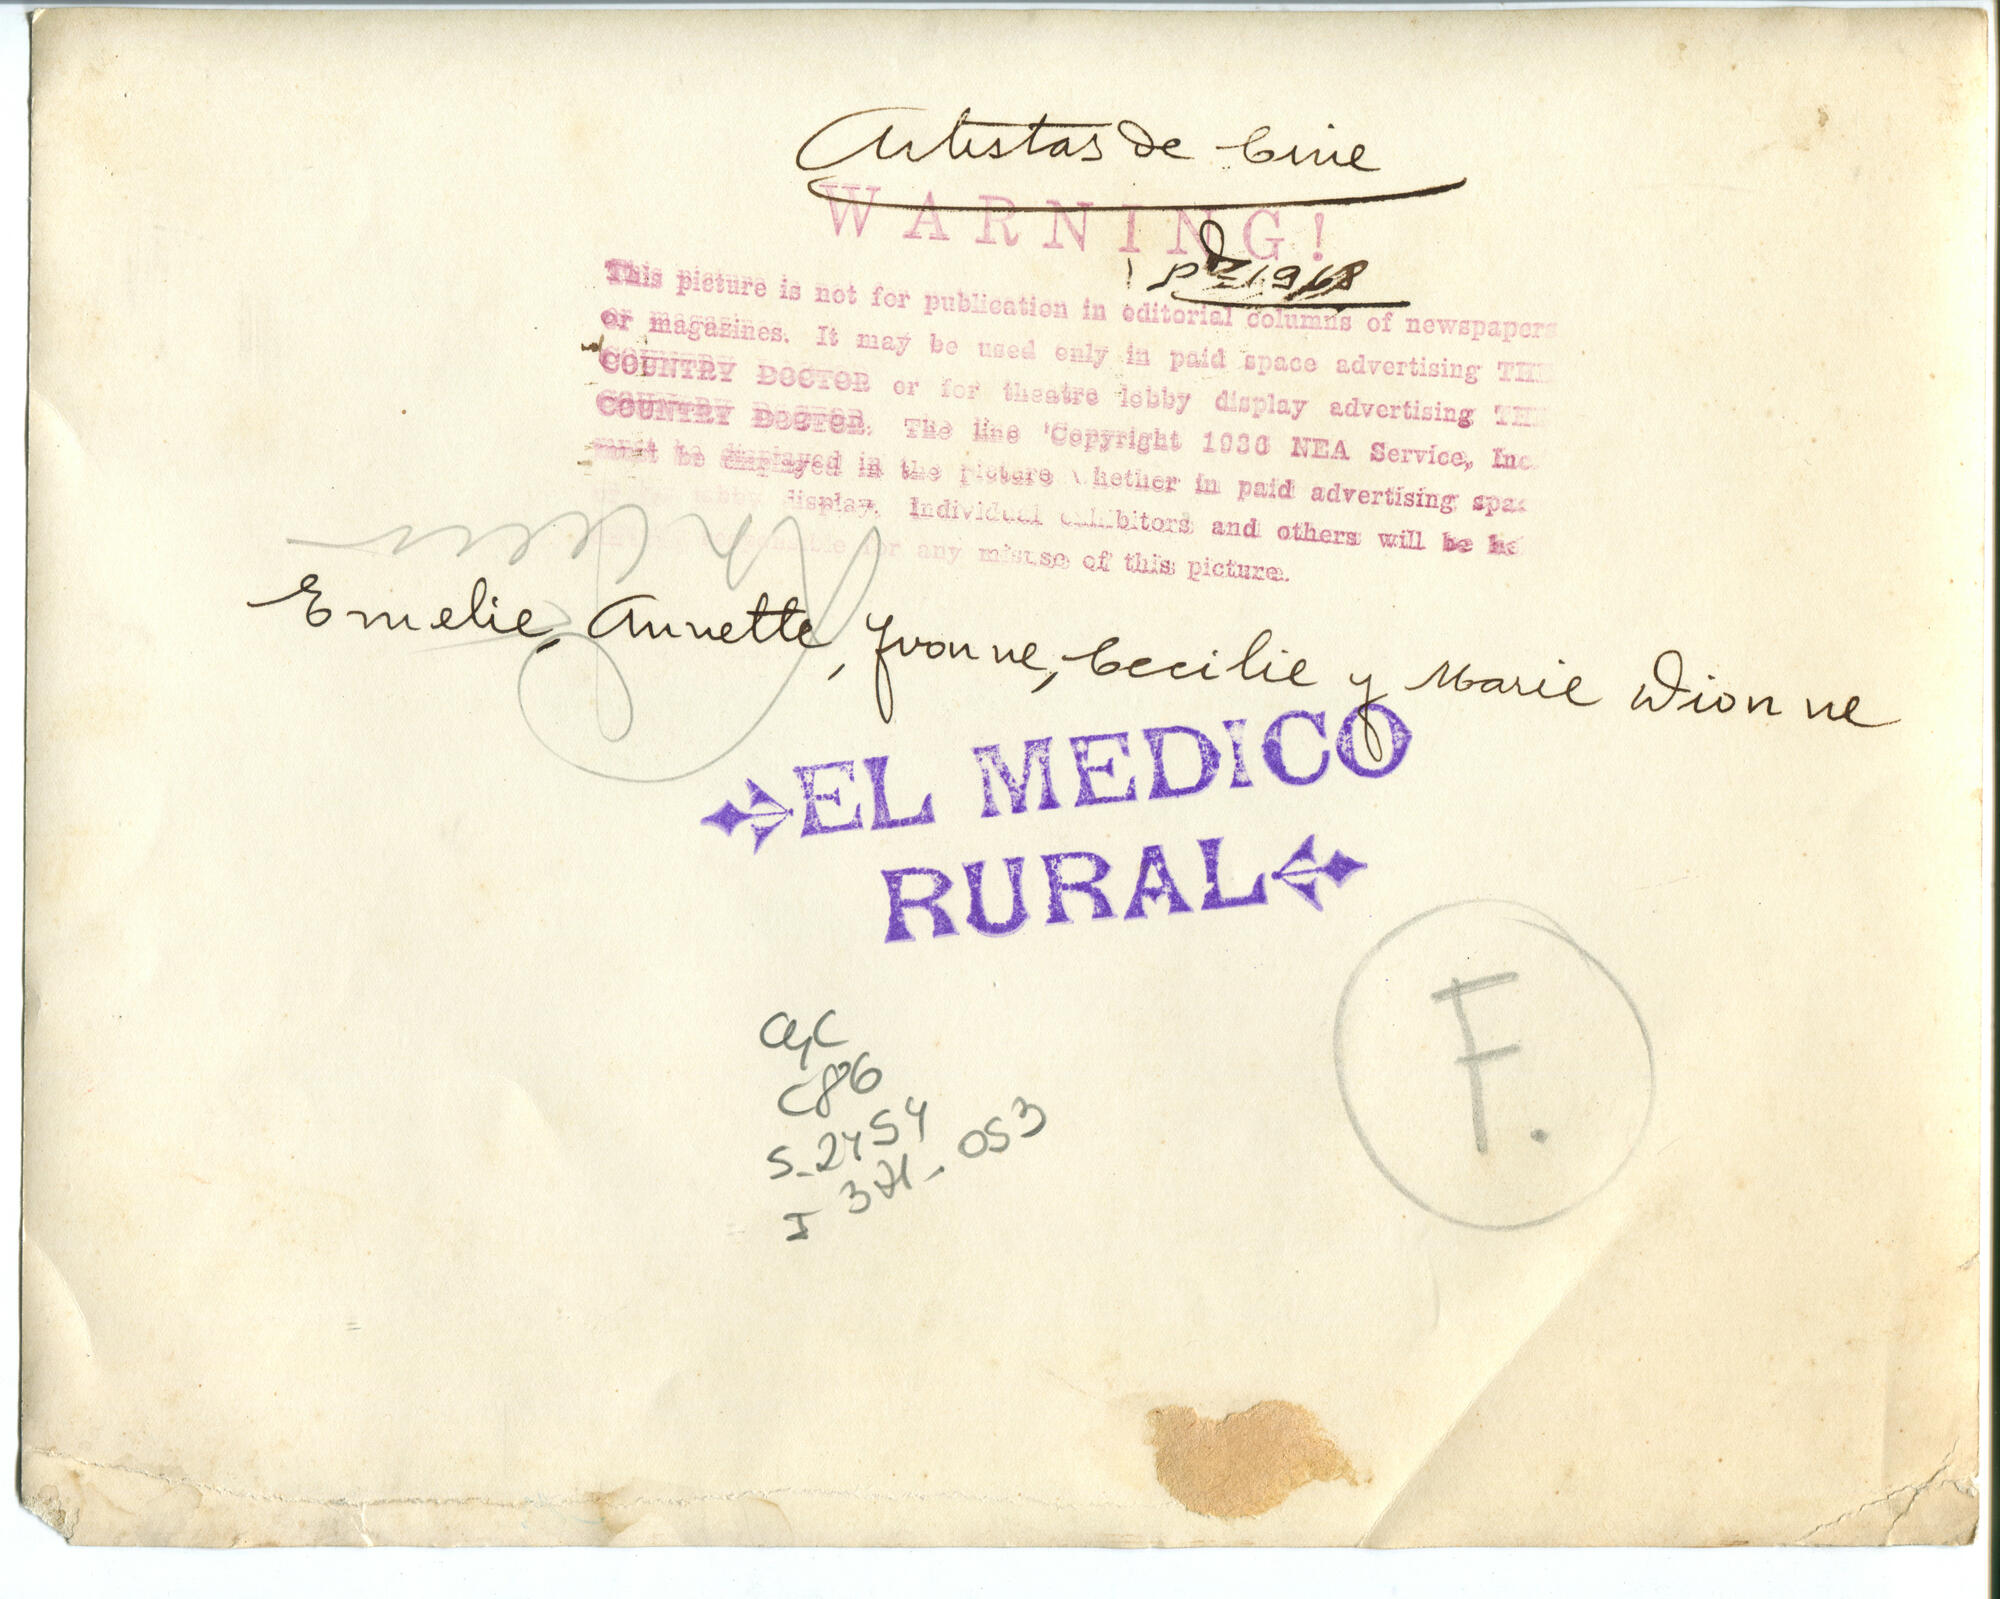 Artistas de Cine
WARNING!
This picture is not for publication in editorial columns of newspapers
or magazines. It may be used only in paid space advertising THE
COUNTRY DOCTOR or for theatre lobby display advertising THE
COUNTRY DOCTOR. The line 'Copyright 1936 NEA Service, Inc.
must be employed in the picture whether in paid advertising spac
lobby display. Individual exhibitors and others will be he
for any misuse of this picture.
Emelie, Annette, Yvonne, Cecilie y Marie Dionne
EL MEDICO
RURAL
F.
C86
S-2454
053